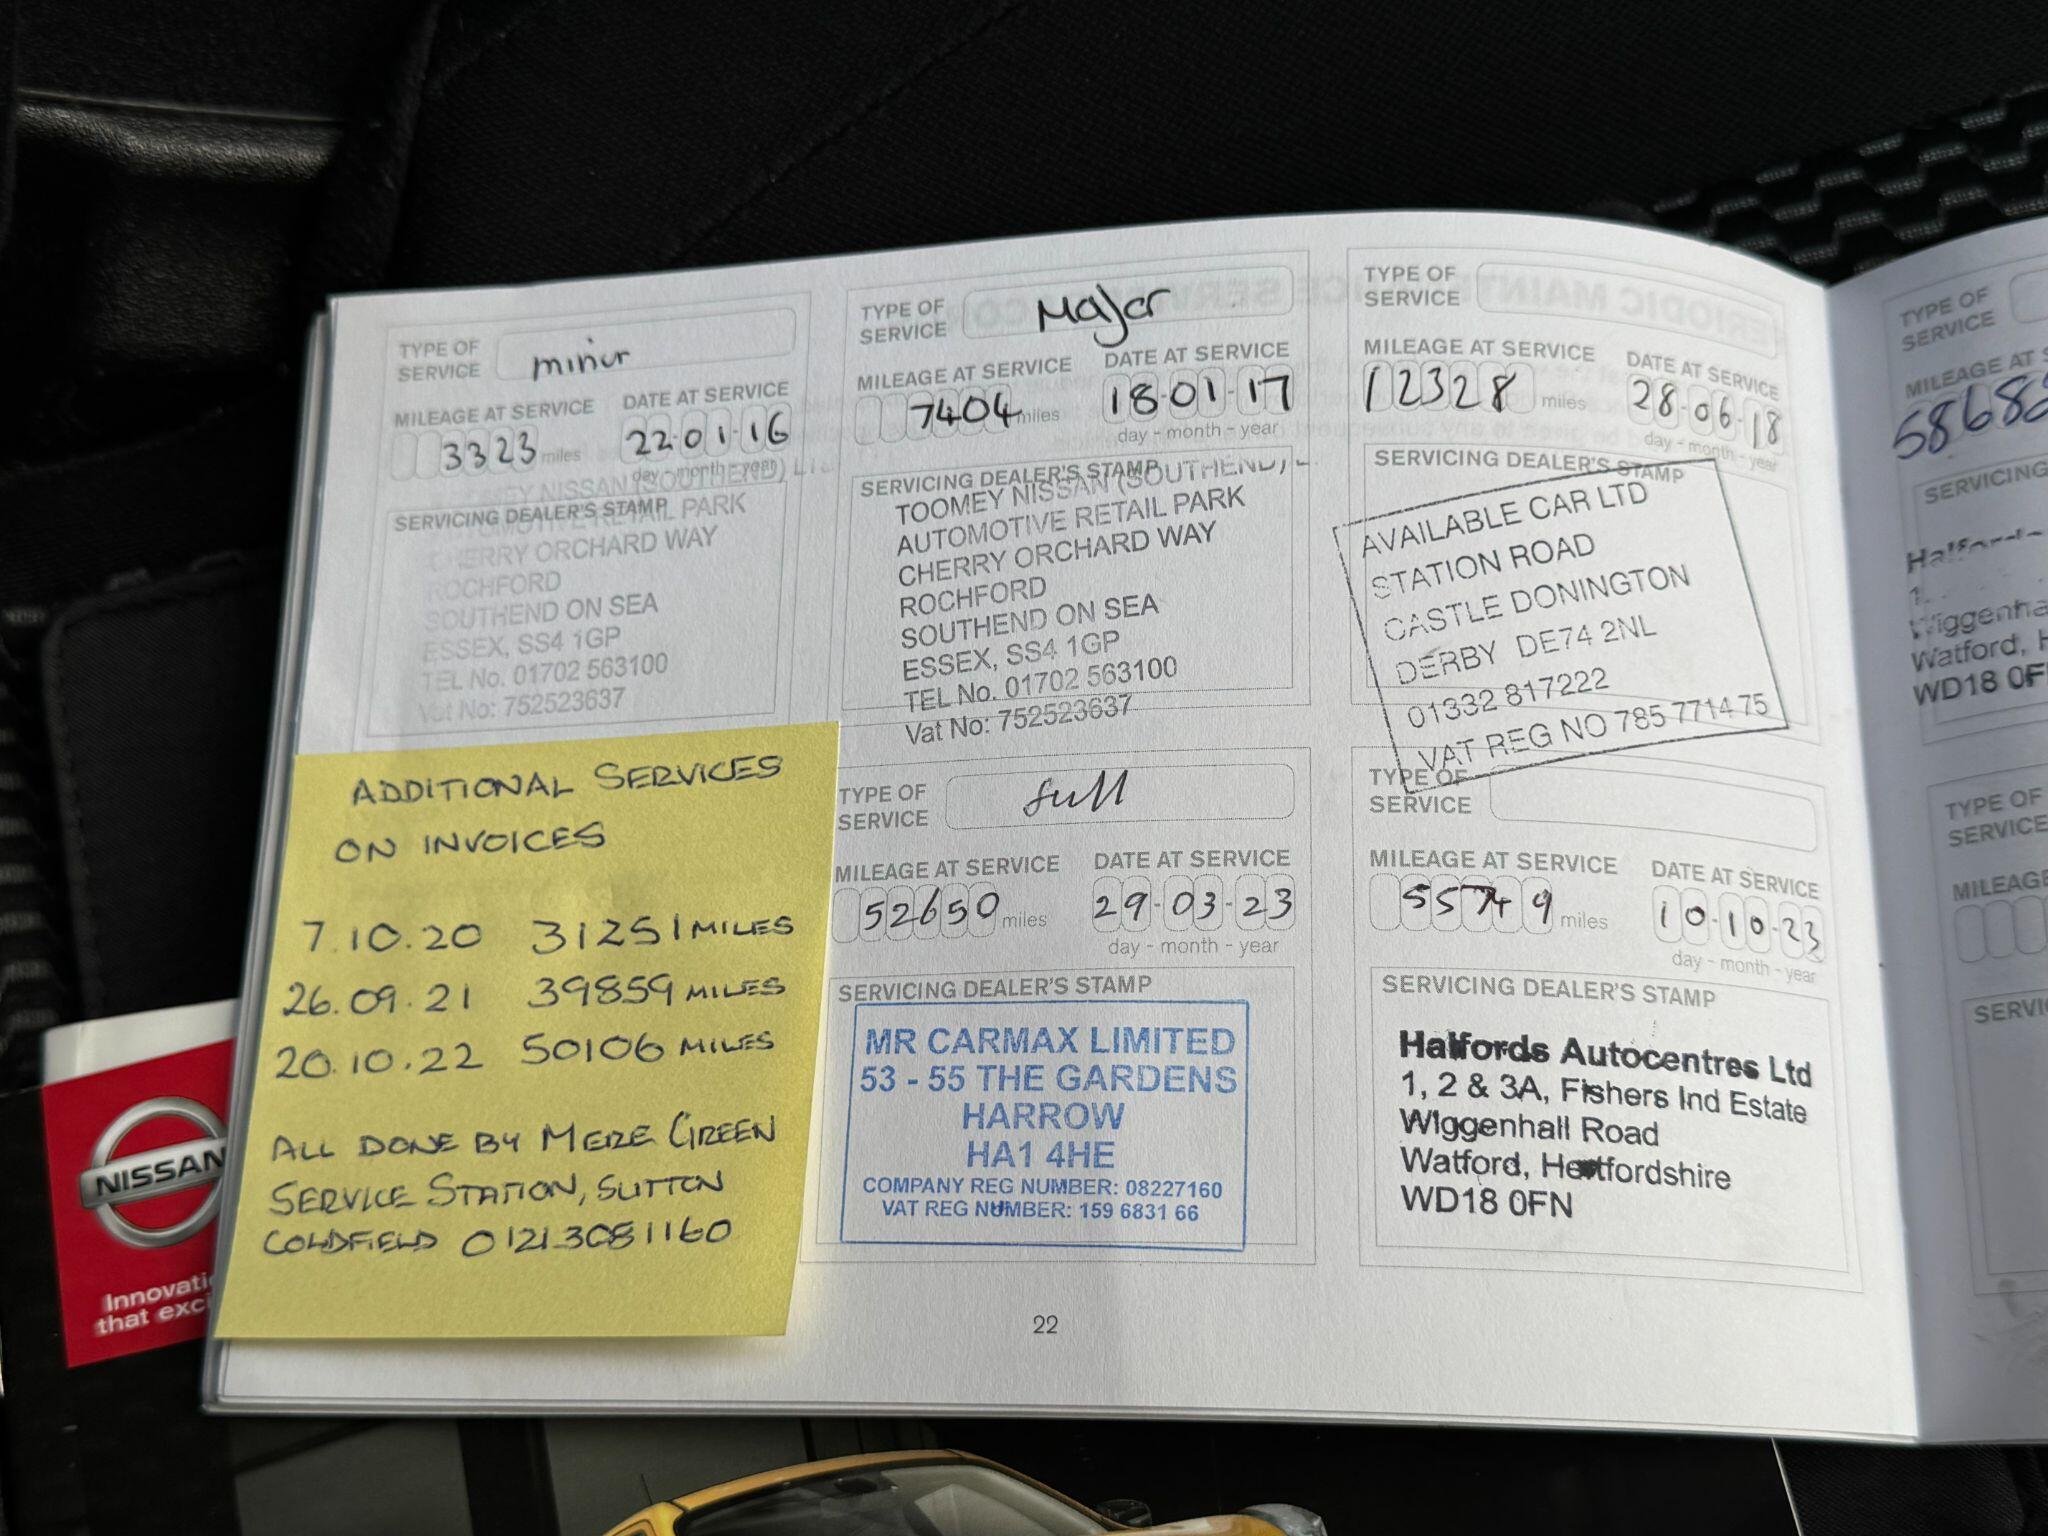 TYPE OF
SERVICE
minor
MILEAGE AT SERVICE
DATE AT SERVICE
3323 miles
22-01-16
day - month - year
TOOMEY NISSAN (SOUTHEND) L
SERVICING DEALER'S STAMP
AUTOMOTIVE RETAIL PARK
CHERRY ORCHARD WAY
ROCHFORD
SOUTHEND ON SEA
ESSEX, SS4 1GP
TEL No. 01702 563100
Vat No: 752523637
TYPE OF
SERVICE
Major
MILEAGE AT SERVICE
DATE AT SERVICE
7404 miles
18-01-17
day - month - year
SERVICING DEALER'S STAMP
TOOMEY NISSAN (SOUTHEND) L
AUTOMOTIVE RETAIL PARK
CHERRY ORCHARD WAY
ROCHFORD
SOUTHEND ON SEA
ESSEX, SS4 1GP
TEL No. 01702 563100
Vat No: 752523637
TYPE OF
SERVICE
MILEAGE AT SERVICE
DATE AT SERVICE
12328 miles
28-06-18
day - month - year
SERVICING DEALER'S STAMP
AVAILABLE CAR LTD
STATION ROAD
CASTLE DONINGTON
DERBY DE74 2NL
01332 817222
VAT REG NO 785 7714 75
ADDITIONAL SERVICES
ON INVOICES
7.10.20 31251 MILES
26.09.21 39859 MILES
20.10.22 50106 MILES
ALL DONE BY MERE GREEN
SERVICE STATION, SUTTON
COLDFIELD 01213081160
TYPE OF
SERVICE
full
MILEAGE AT SERVICE
DATE AT SERVICE
52650 miles
29-03-23
day - month - year
SERVICING DEALER'S STAMP
MR CARMAX LIMITED
53 - 55 THE GARDENS
HARROW
HA1 4HE
COMPANY REG NUMBER: 08227160
VAT REG NUMBER: 159 6831 66
TYPE OF
SERVICE
MILEAGE AT SERVICE
DATE AT SERVICE
55749 miles
10-10-23
day - month - year
SERVICING DEALER'S STAMP
Halfords Autocentres Ltd
1, 2 & 3A, Fishers Ind Estate
Wiggenhall Road
Watford, Hertfordshire
WD18 0FN
22
TYPE OF
SERVICE
MILEAGE AT
SERVICING
Halfords
1,
Wiggenha
Watford, H
WD18 0F
TYPE OF
SERVICE
MILEAGE
SERVI
NISSAN
Innovati
that exci